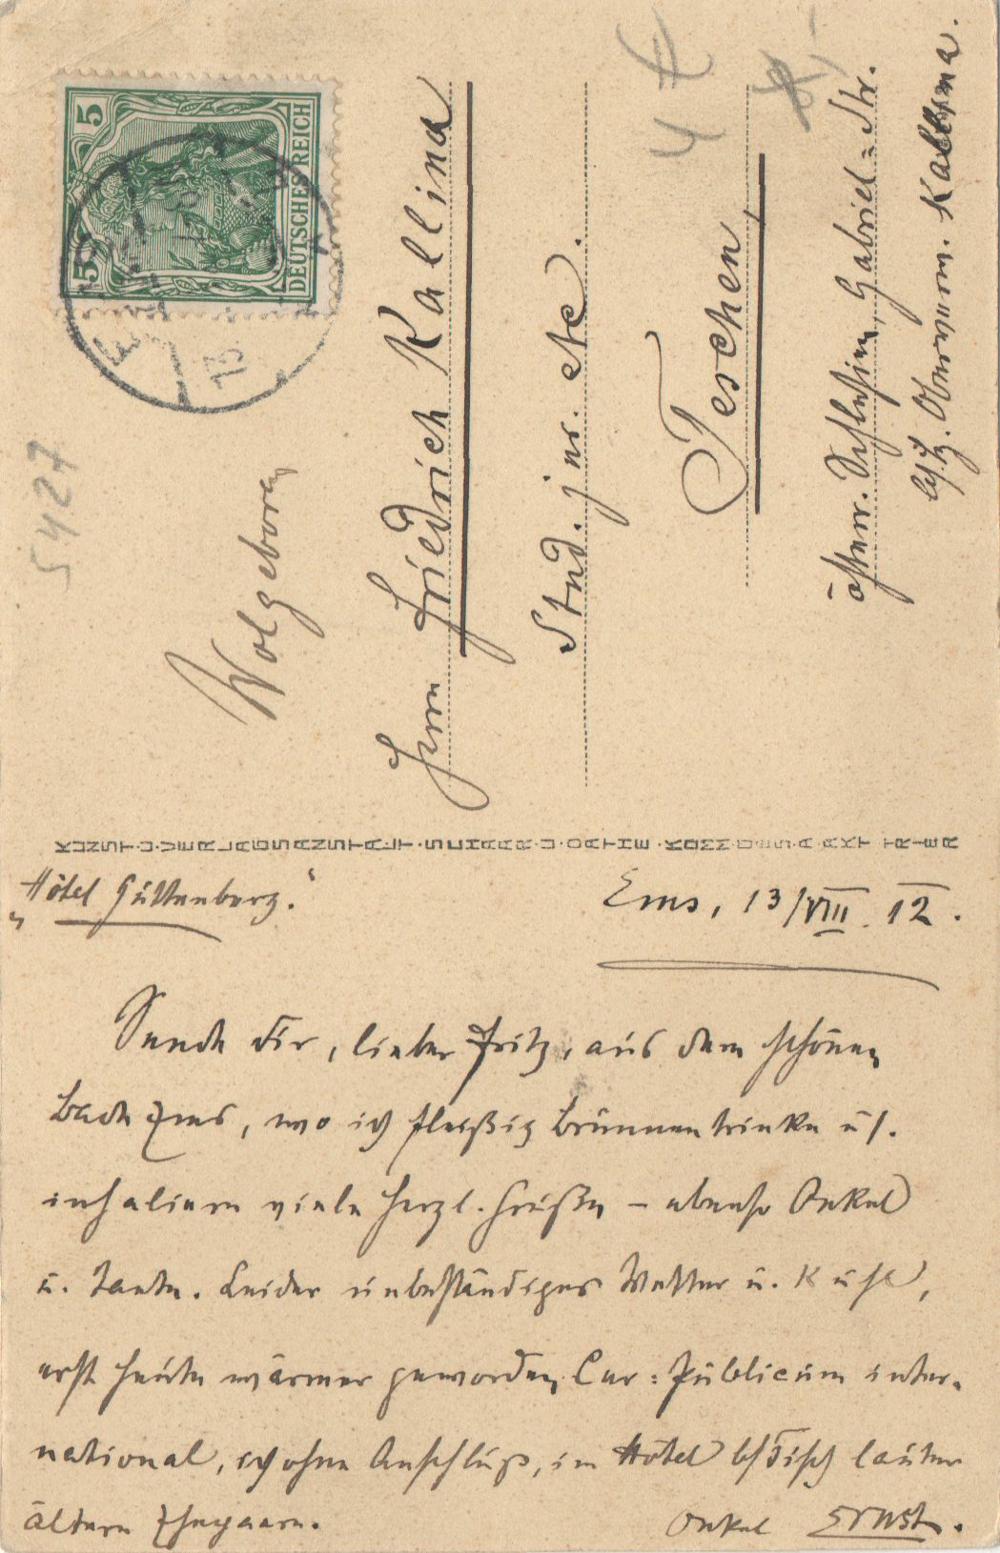 5 5
DEUTSCHES REICH
13
5427
Wolgeboren
Herrn Friedrich Kallina
Stud. jur. etc.
Teschen
österr. Schlesien, Gabriel=Str.
bei Kallina.
KUNST-U.VERLAGSANSTALT SCHAAR U. DATHE KOMM.GES.A.AKT TRIER
„Hôtel Guttenberg."
Ems, 13/VIII. 12.
Sende Dir, lieber Fritz, aus dem schönen
Bade Ems, wo ich fleißig Brunnen trinke u.
inhaliere viele herzl. Grüße – ebenso Onkel
u. Tante. Leider unbeständiges Wetter u. Kühl,
erst heute wärmer geworden, Cur=Publicum inter-
national, ich ohne Anschluß, im Hôtel b/Tisch lauter
ältere Ehepaare.
Onkel Ernst.